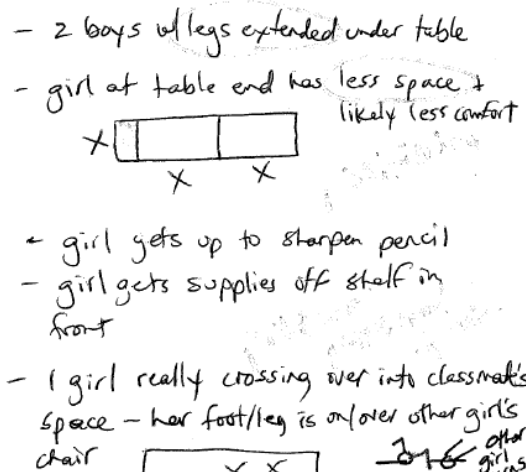 - 2 boys w/ legs extended under table
- girl at table end has less space +
likely less comfort
X
X X
- girl gets up to sharpen pencil
- girl gets supplies off shelf in
front
- 1 girl really crossing over into classmate's
space - her foot/leg is on/over other girl's
chair
X X
other
girl